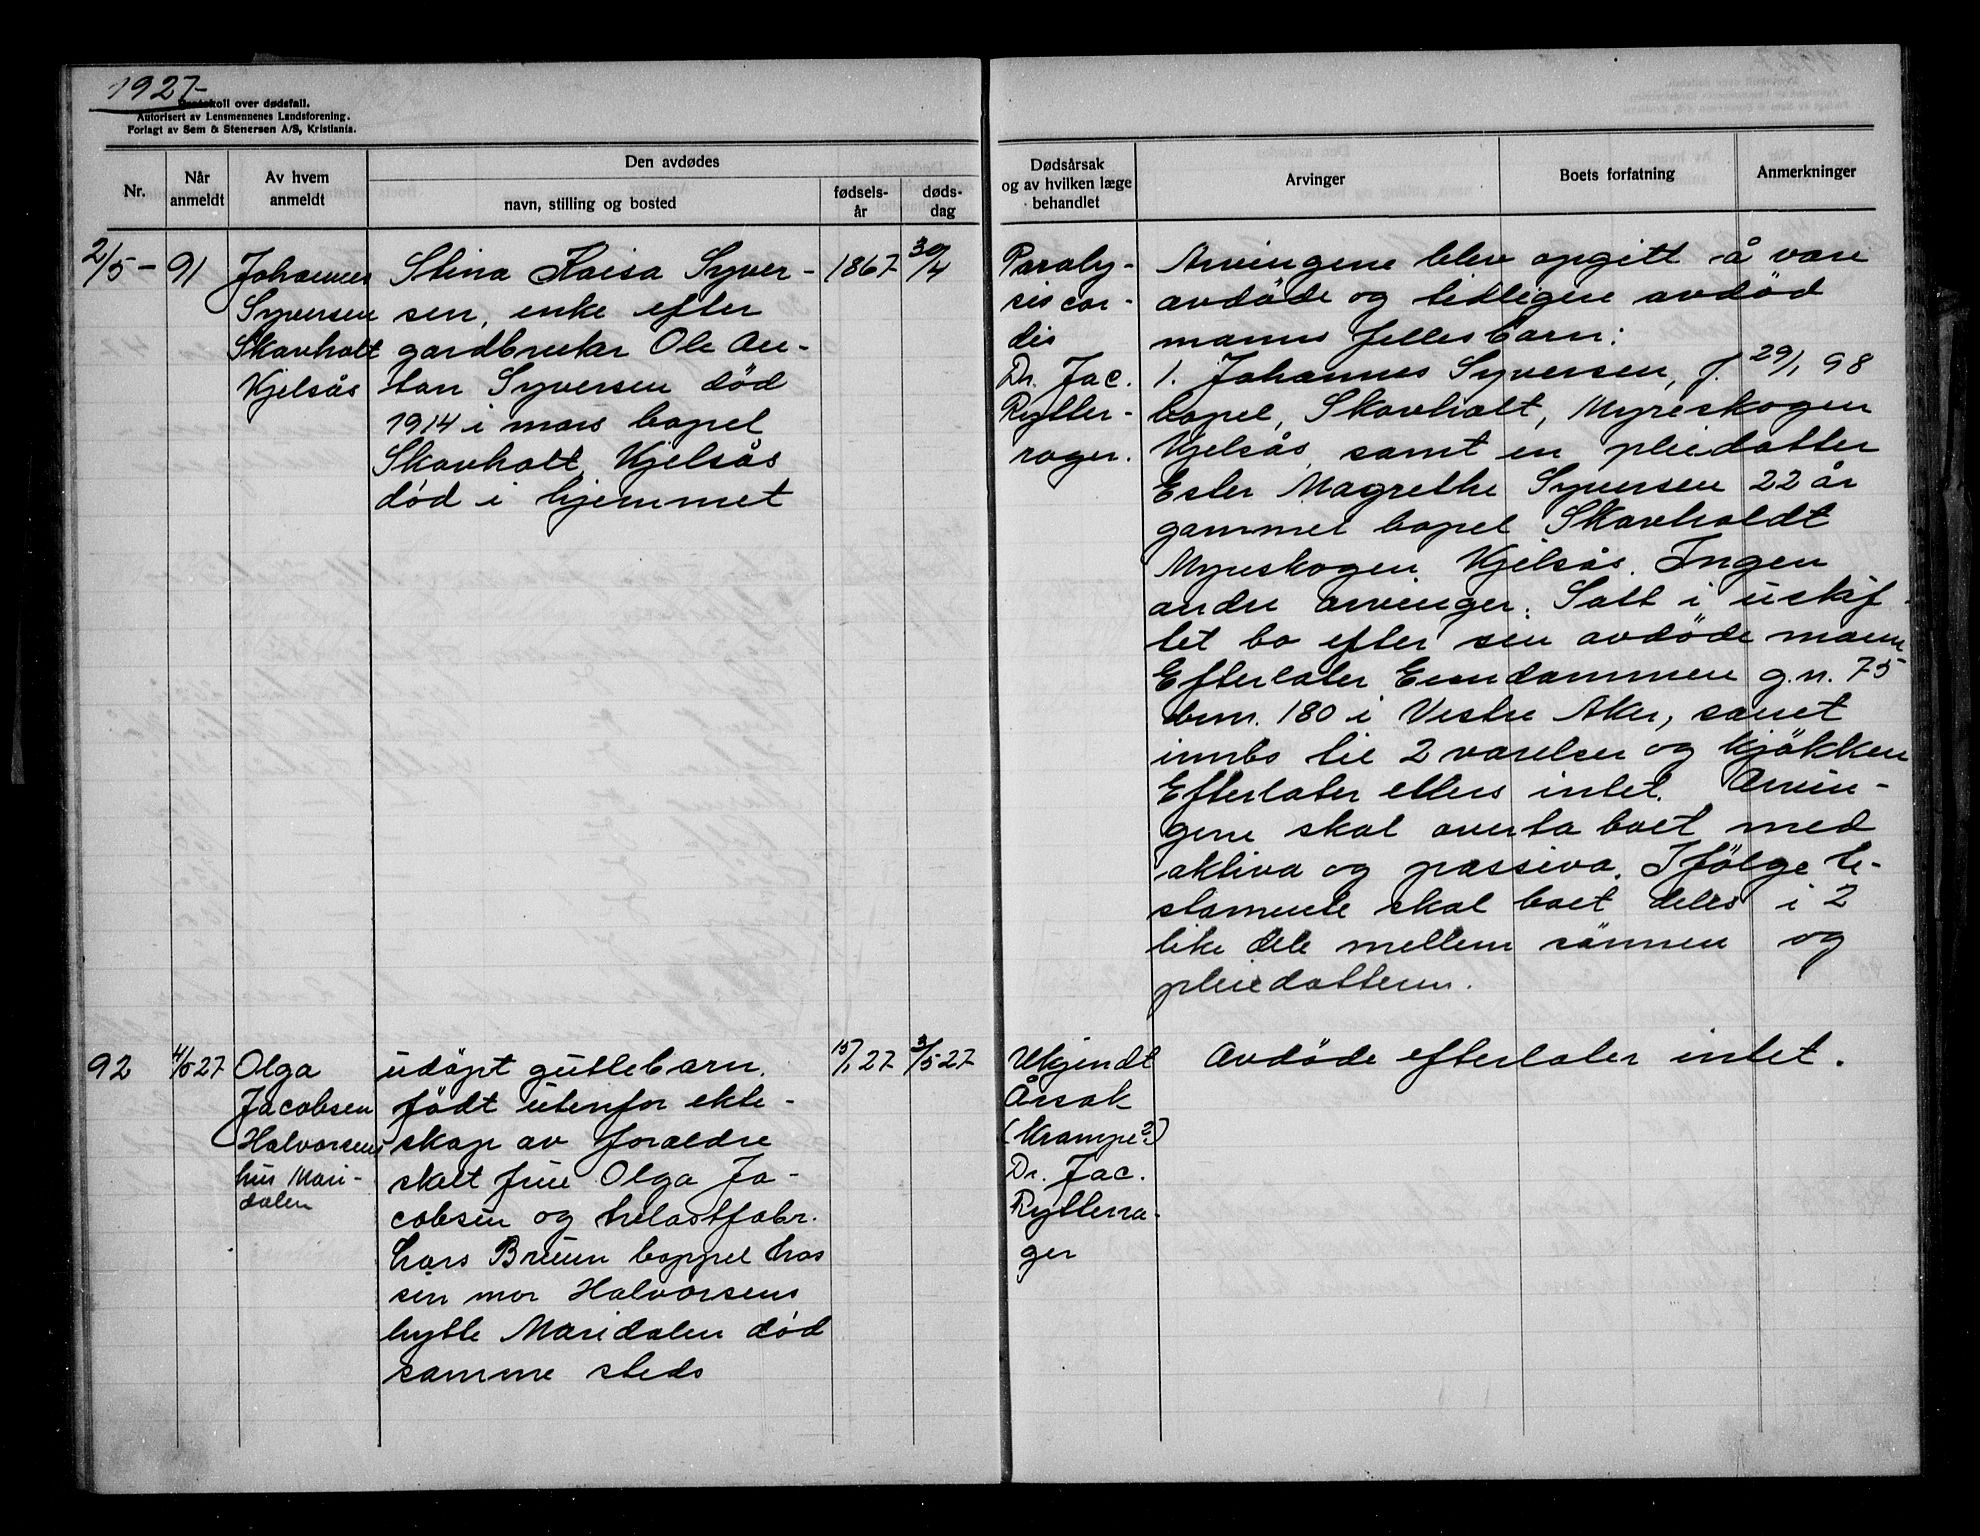 1927
Protokoll over dødsfall.
Autorisert av Lensmennenes Landsforening.
Forlagt av Sem & Stenersen A/S, Kristiania.
Nr.
Når anmeldt
Av hvem anmeldt
Den avdødes
navn, stilling og bosted
fødsels-år
døds-dag
Dødsårsak og av hvilken læge behandlet
Arvinger
Boets forfatning
Anmerkninger
2/5 -
91
Johannes
Syversen
Skavholt
Kjelsås
Stina Kaisa Syver-
sen, enke efter
gardbruker Ole An-
ton Syversen død
1914 i mars bopel
Skavholt, Kjelsås
død i hjemmet
1867
30/4
Paraly-
sis cor-
dis
Dr. Jac.
Rytter-
rager.
Arvingene blev opgitt å vare
avdøde og tidligere avdød
manns fellesbarn:
1. Johannes Syversen, f. 29/1 98
bopel, Skavholt, Myreskogen
Kjelsås, samt en pleiedatter
Ester Magrethe Syversen 22 år
gammel bopel Skavholdt
Myreskogen, Kjelsås. Ingen
andre arvinger. Satt i uskif-
tet bo efter sin avdøde mann
Efterlater Eiendommen g.n. 75
bnr. 180 i Vestre Aker, samt
innbo til 2 varelser og kjøkken
Efterlater ellers intet. Arvin-
gene skal overta boet med
aktiva og passiva. Ifølge te-
stamente skal boet deles i 2
like dele mellem sønnen og
pleiedatteren.
92
4/5 27
Olga
Jacobsen
Halvorsens
hus Mari-
dalen
udøpt guttebarn,
født utenfor ekte-
skap av foraldre
skilt frue Olga Ja-
cobsen og trelastfabr.
Lars Bruun boppel hos
sin mor Halvorsens
hytte Maridalen død
samme steds
15/1 27
3/5 27
Ukjendt
Årsak
(Krampe?)
Dr. Jac.
Rytterra-
ger
Avdøde efterlater intet.